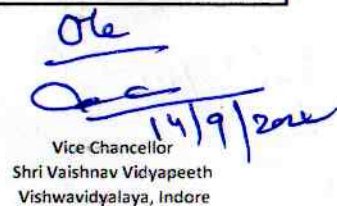 14/9/202
Vice Chancellor
Shri Vaishnav Vidyapeeth
Vishwavidyalaya, Indore